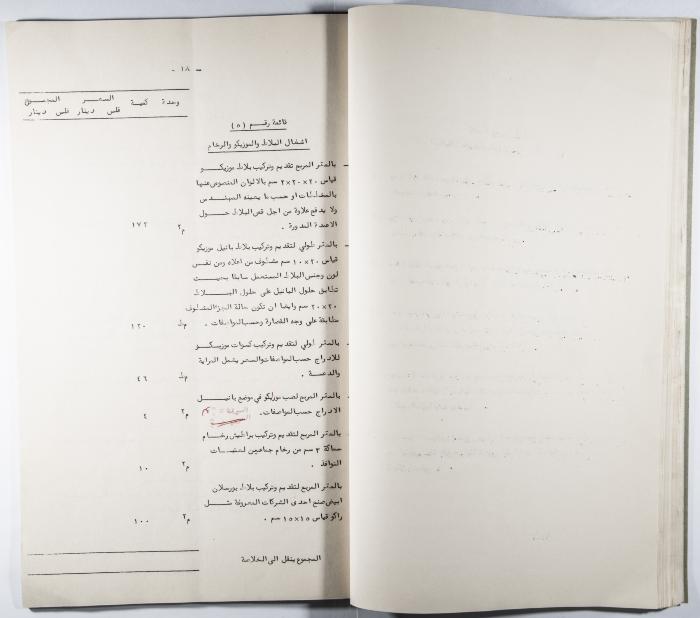 - ١٨ -
وحدة كمية السعر المجموع
فلس دينار فلس دينار
قائمة رقم (٥)
اشغال البلاط والموزيكو والرخام
بالمتر المربع تقديم وتركيب بلاط موزيكو
قياس ٢٠×٢٠×٢ سم بالالوان المنصوص عنها
بالمخططات او حسب ما يعينه المهندس
ولا يدفع علاوة من اجل قص البلاط حول
الاعمدة المدورة . م٢ ١٧٢
بالمتر طولي لتقديم وتركيب بلاط بانيل موزيكو
قياس ٢٠×١٠ سم مشطوف من اعلاه ومن نفس
لون وجنس البلاط المستعمل سابقا بحيث
تنطبق حلول البانيل على حلول البلاط
٢٠×٢٠ سم وايضا ان تكون حافة الجزء المشطوف
منطبقة على وجه القصارة وحسب المواصفات . م.ط ١٢٠
بالمتر طولي لتقديم وتركيب كسوات موزيكو
للادراج حسب المواصفات والسعر يشمل المراية
والدعسة . م.ط ٤٦
بالمتر المربع لصب موزيكو في موضع بانيل
الادراج حسب المواصفات. م٢ ٤
بالمتر المربع لتقديم وتركيب براطيش رخام
سماكة ٣ سم من رخام جماعين لجلسات
النوافذ . م٢ ١٠
بالمتر المربع لتقديم وتركيب بلاط بورسلان
ابيض صنع احدى الشركات المعروفة مثل
راكو قياس ١٥×١٥ سم . م٢ ١٠٠
المجموع ينقل الى الخلاصة